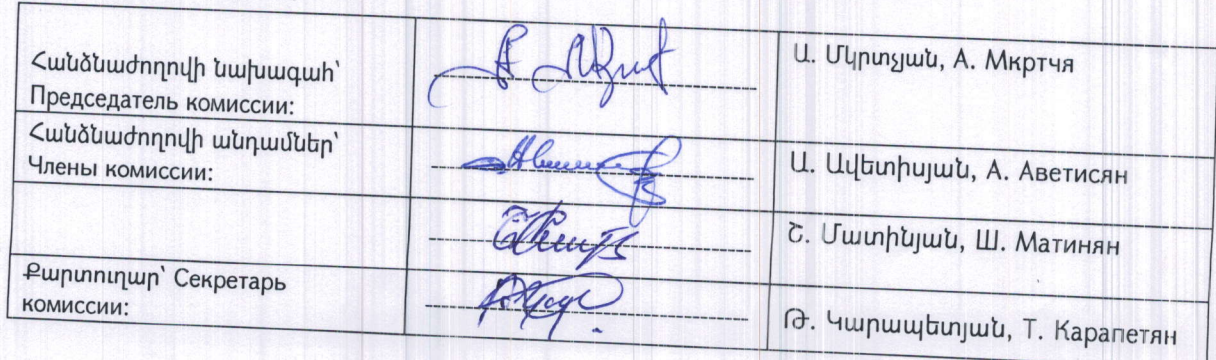 Հանձնաժողովի նախագահ՝
Председатель комиссии:
Ա. Մկրտչյան, А. Мкртчя
Հանձնաժողովի անդամներ՝
Члены комиссии:
Ա. Ավետիսյան, А. Аветисян
Շ. Մատինյան, Ш. Матинян
Քարտուղար՝ Секретарь
комиссии:
Թ. Կարապետյան, Т. Карапетян